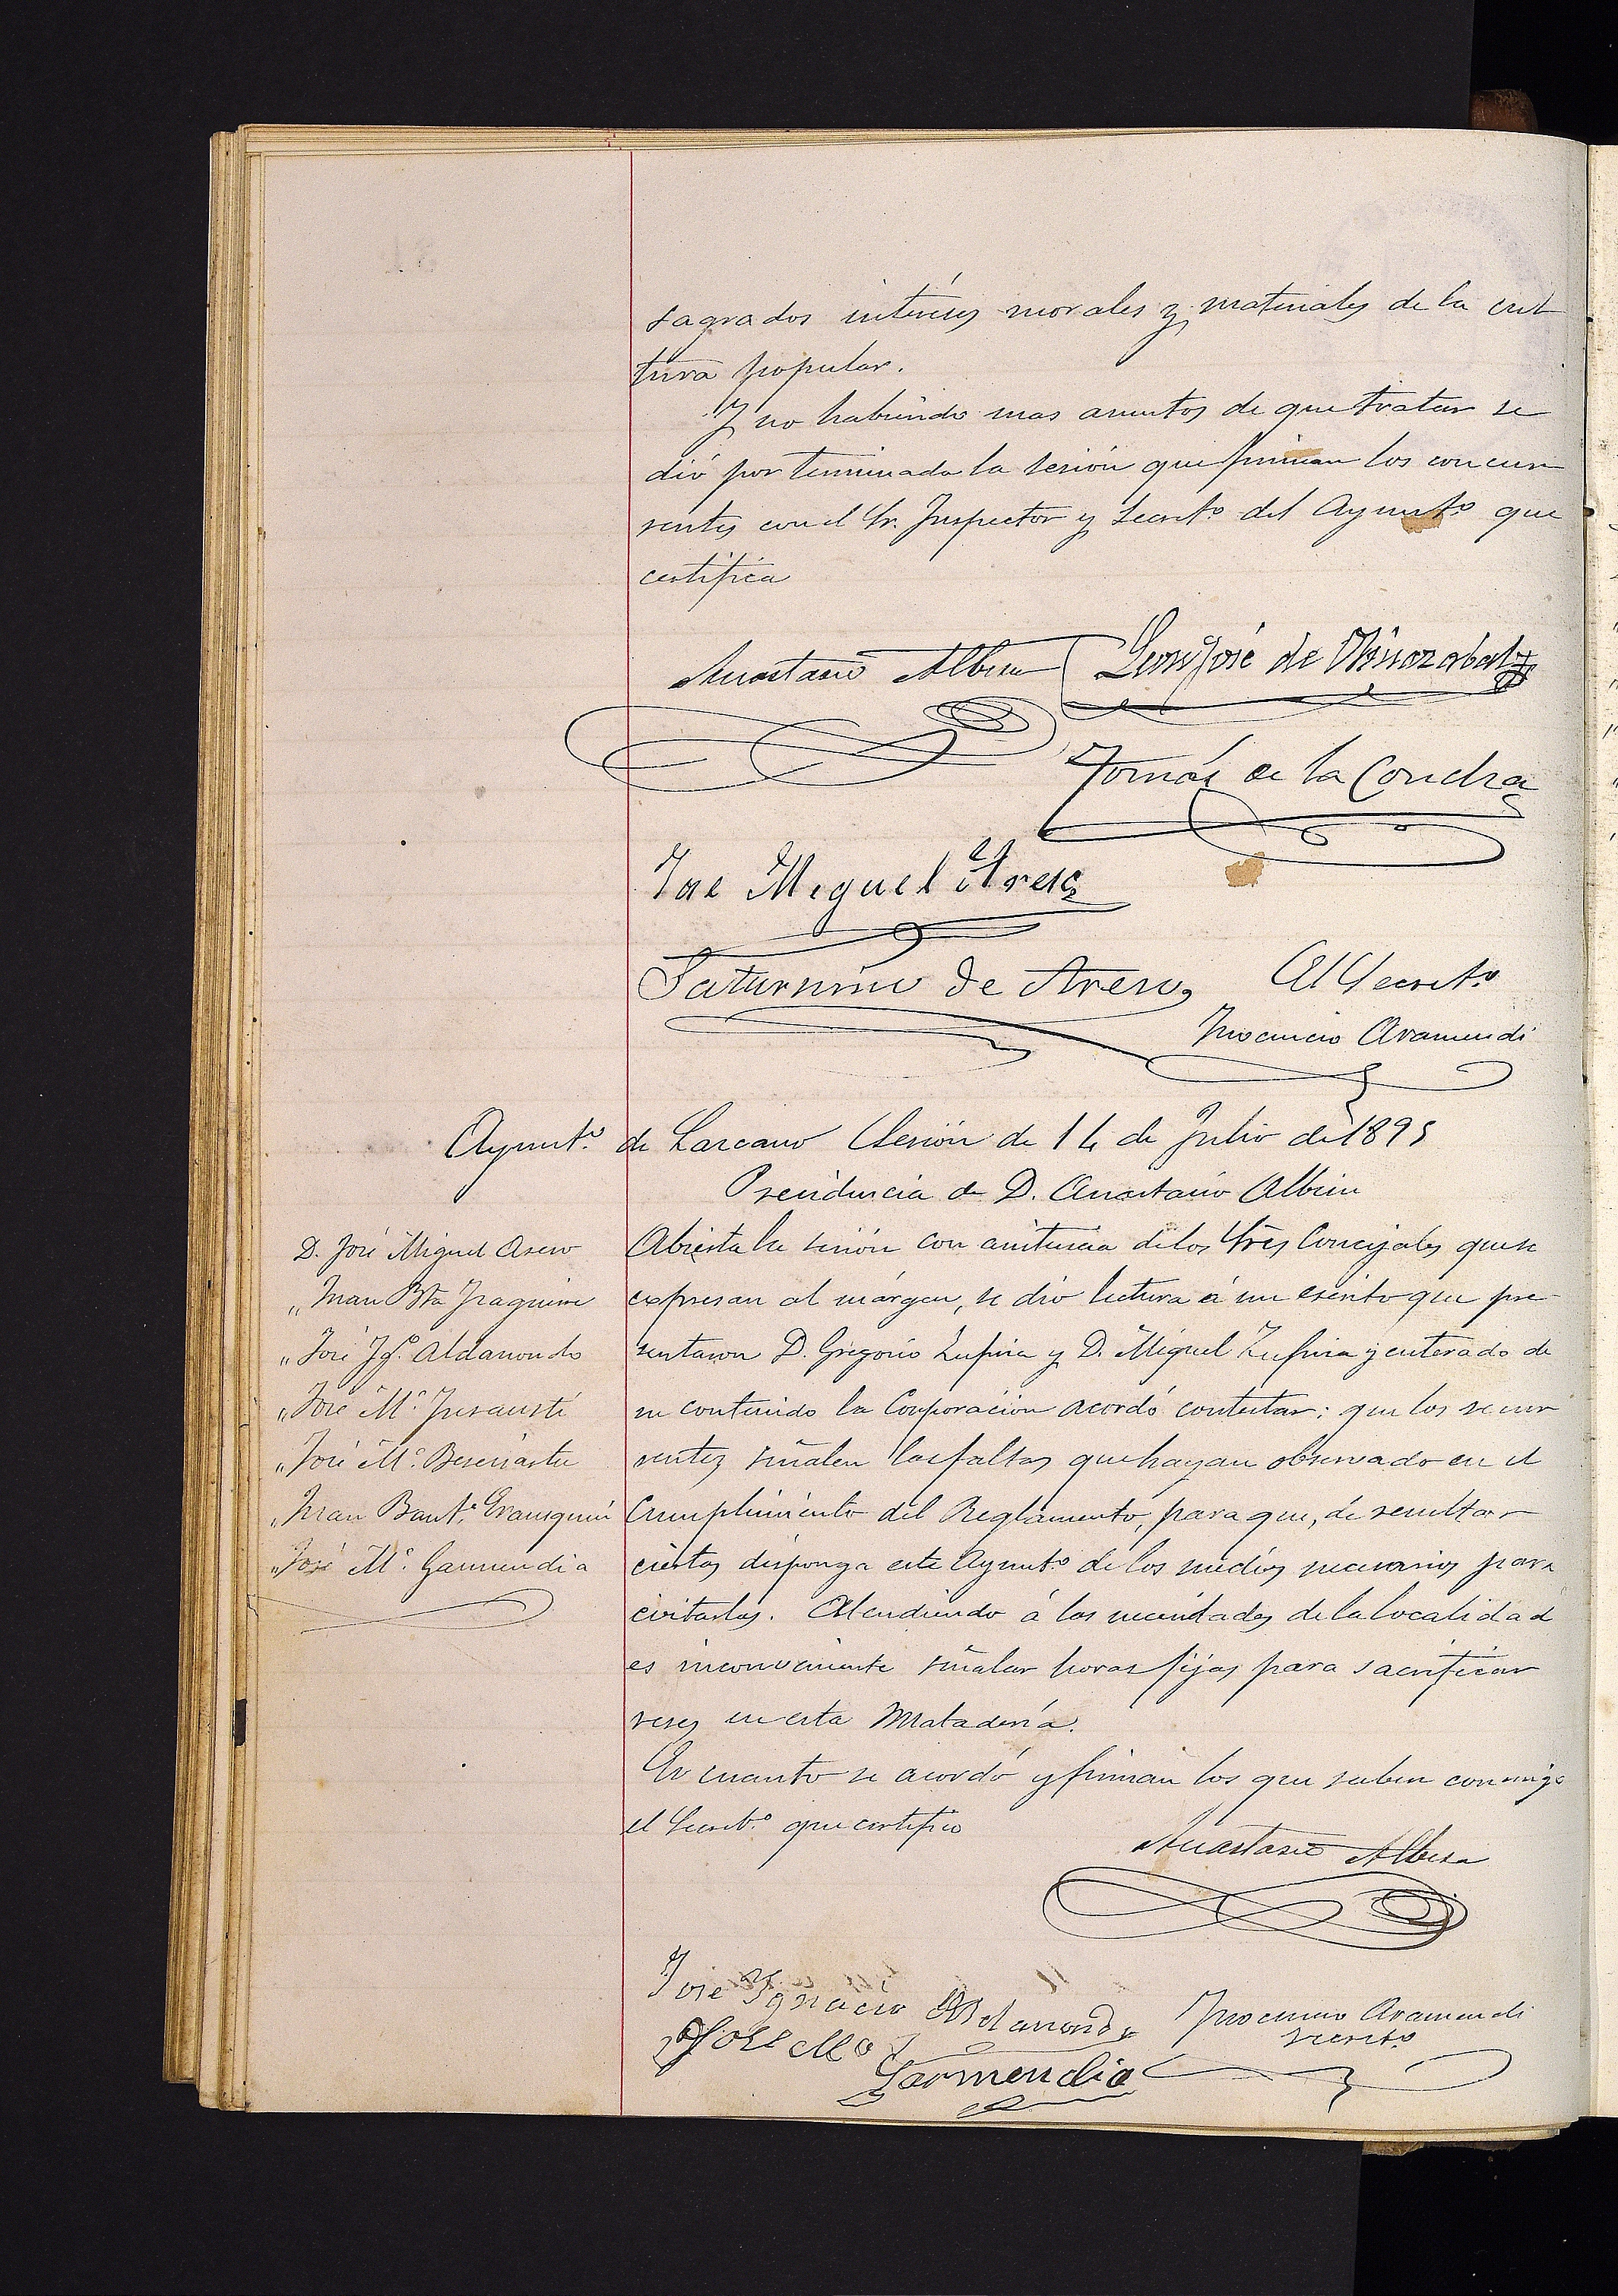 sagrados intereses morales y materiales de la cul
tura popular.
Y no habiendo mas asuntos de que tratar se
dió por terminada la sesión que firman los concur
rentes con el Sr. Inspector y Secretº del Ayuntº que
certifica
Anastasio Albisu
León José de
Tomás de la Concha
José Miguel Areso
Saturnino de Areso
El Secretº
Inocencio Aramendi
Ayuntº de Lazcano Sesión de 14 de Julio de 1895
Presidencia de D. Anastasio Albisu
D. José Miguel Aseso
" Juan Bta Yraquirre
" José Ygº Aldanondo
" José Mª Jusausti
" José Mª
" Juan Bautª
" José Mª Garmendia
Abierta la sesión con asistencia de los Sres Concejales que se
expresan al márgen, se dio lectura á un escrito que pre
sentaron D. Gregorio Zufiria y D. Miguel Zufiria y enterado de
su contenido la Corporación acordó contestar: que los recur
rentes señalen las faltas que hayan observado en el
Cumplimiento del Reglamento, para que, de resultar
ciertas disponga este Ayuntº de los medios necesarios para
evitarlas. Atendiendo á las necesidades de la localidad
es inconveniente señalar horas fijas para sacrificar
reses en esta Matadería.
En cuanto se acordó y firman los que saben conmigo
el Secretº que certifico
Anastasio Albisu
José Ygnacio Aldanondo
José Mª
Garmendia
Inocencio Aramendi
Secretº